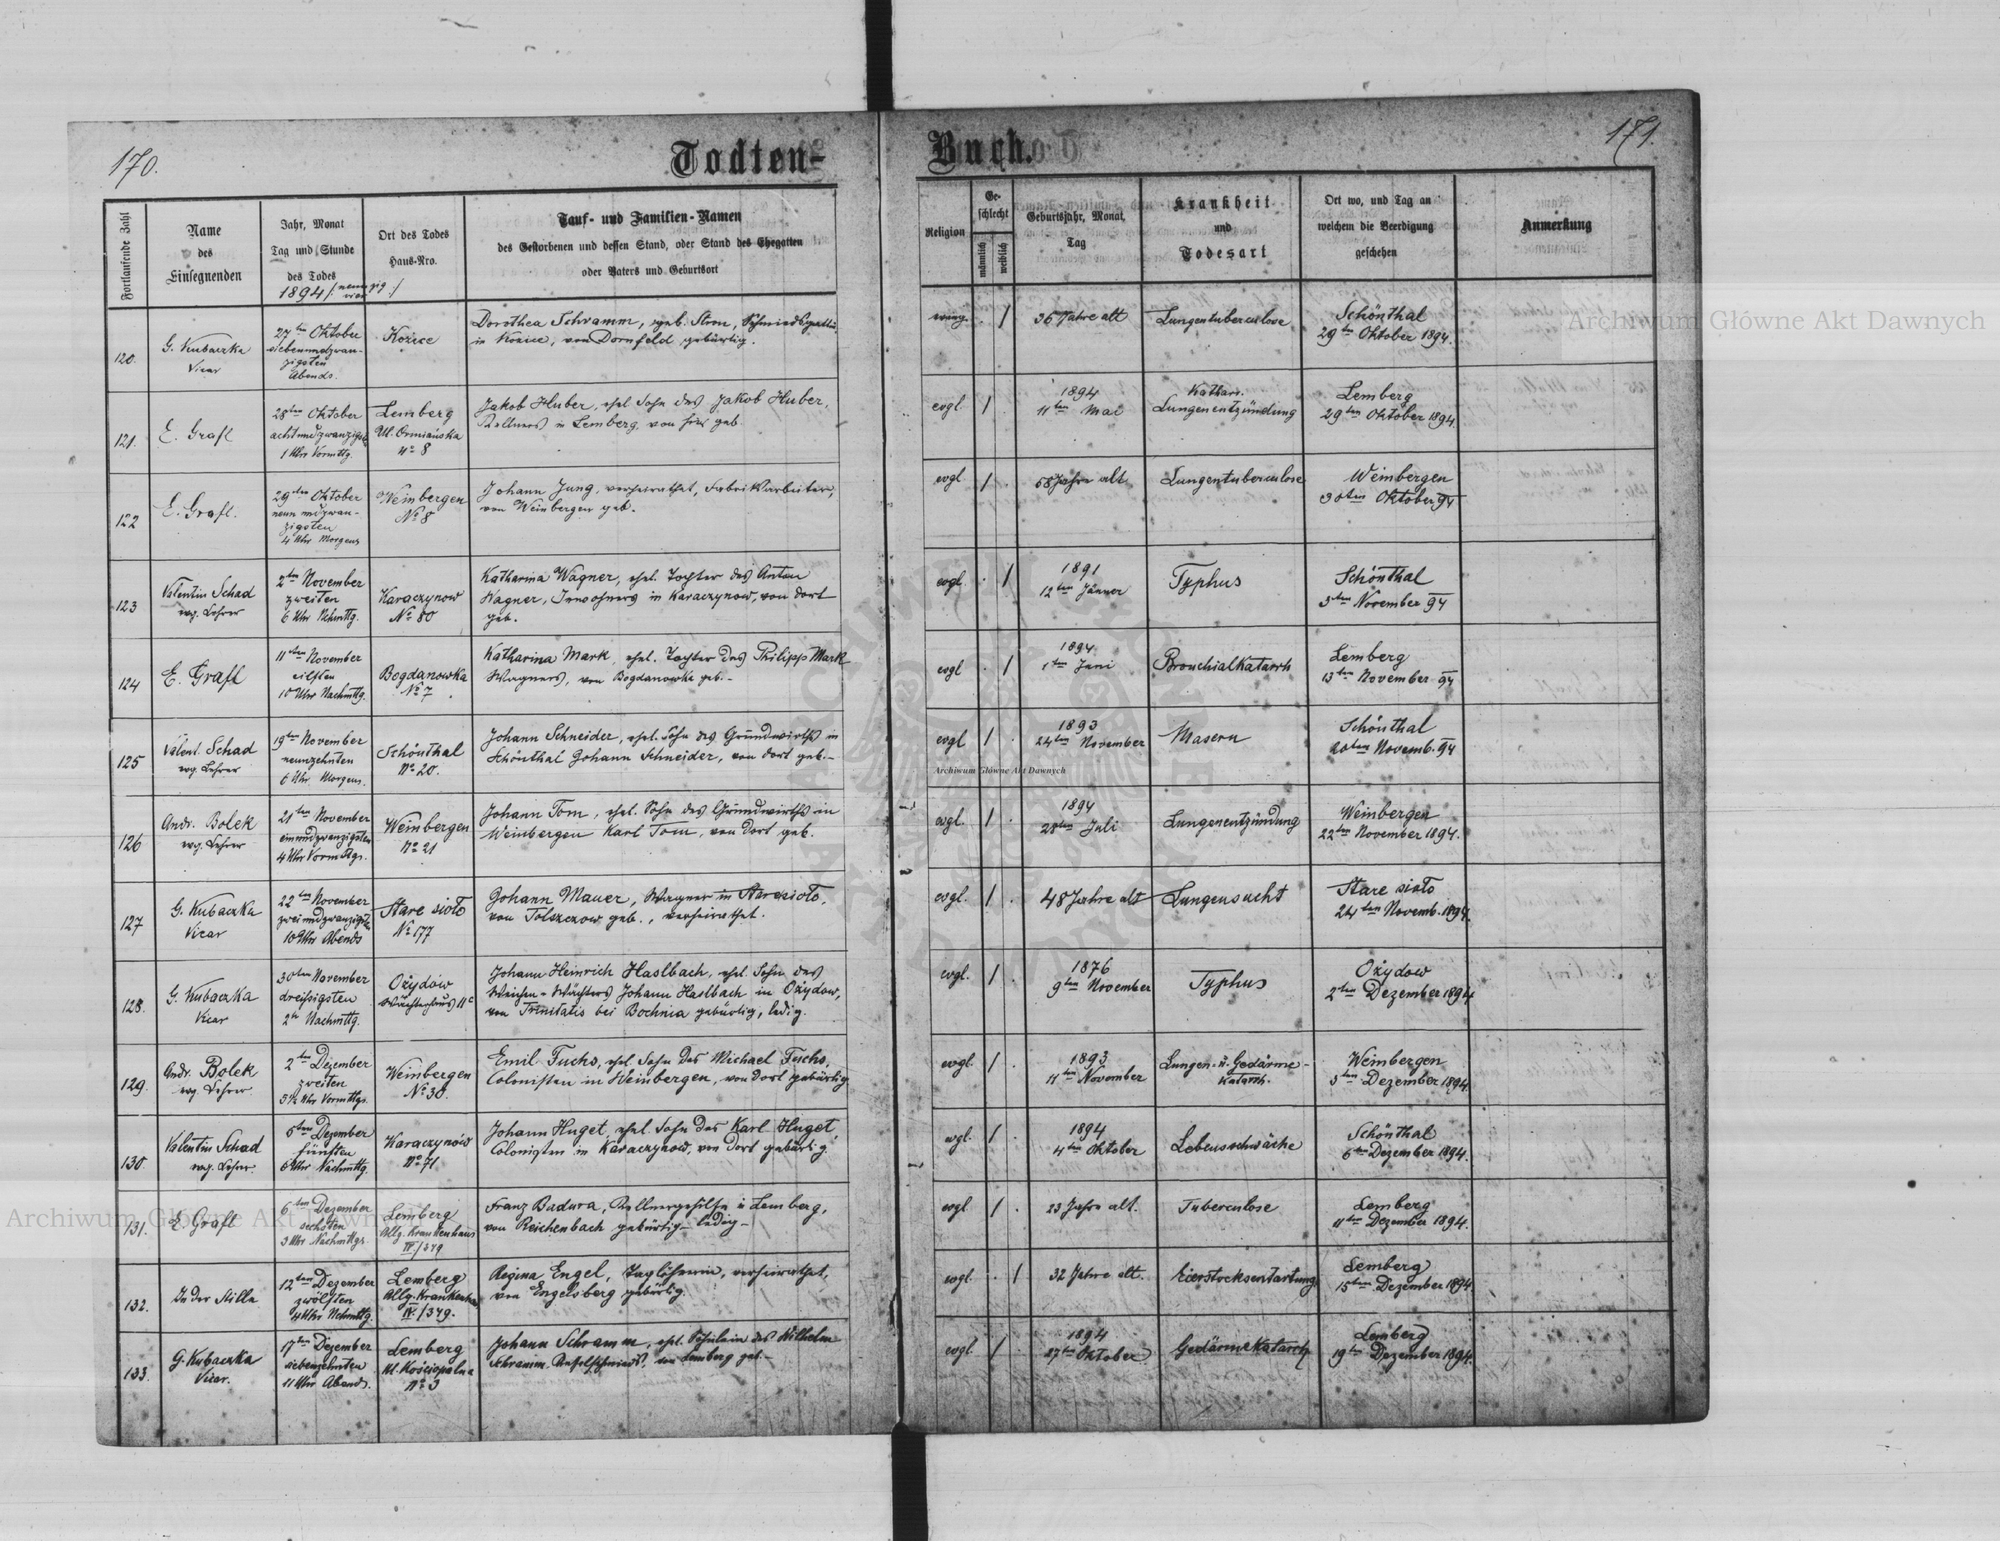 170.
Todten-
Fortlaufende Zahl
Name
des
Einsegnenden
Jahr, Monat
Tag und Stunde
des Todes
1894
Ort des Todes
Haus-Nro.
Tauf- und Familien-Namen
des Gestorbenen und dessen Stand, oder Stand des Ehegatten
oder Vaters und Geburtsort
120.
G. Kubaczka
Vicar
27ten Oktober
siebenundzwan-
zigsten
Abends.
Kozice
Dorothea Schramm, geb. Schmiedsgattin
in Kozice, von Dornfeld gebürtig.
121.
E. Grafl
28ten Oktober
achtundzwanzigsten
1 Uhr Vormttg.
Lemberg
Ul. Ormiańska
No 8
Jakob Huber, ehel. Sohn des Jakob Huber,
Kellners in Lemberg, von hier geb.
122
E. Grafl.
29ten Oktober
neunundzwan-
zigsten
4 Uhr Morgens
Weinbergen
No 8
Johann Jung, verheirathet, Fabriksarbeiter,
von Weinbergen geb.
123
Valentin Schad
evg. Lehrer
2ten November
zweiten
6 Uhr Nchmttg.
Karaczynow
No 80
Katharina Wagner, ehel. Tochter des Anton
Wagner, Inwohners in Karaczynow, von dort
geb.
124
E. Grafl
11ten November
eilften
10 Uhr Nachmttg.
Bogdanowka
No 7
Katharina Mark, ehel. Tochter des Philipp Mark
Wagners, von Bogdanowka geb.-
125
Valent. Schad
evg. Lehrer
19ten November
neunzehnten
6 Uhr Morgens.
Schönthal
No 20.
Johann Schneider, ehel. Sohn des Grundwirths in
Schönthal Johann Schneider, von dort geb.-
126
Andr. Bolek
evg. Lehrer
21ten November
einundzwanzigsten
4 Uhr Vormttgs.
Weinbergen
No 21
Johann Tom, ehel. Sohn des Grundwirths in
Weinbergen Karl Tom, von dort geb.
127
G. Kubaczka
Vicar
22ten November
zweiundzwanzigsten
10 Uhr Abends
Stare sioło
No 177
Johann Mauer, Wagner in Staresioło,
von Tolszczow geb., verheirathet.
128.
G. Kubaczka
Vicar
30ten November
dreissigsten
2 Uhr Nachmttg.
Ożydów
Wächterhaus 11c
Johann Heinrich Haslbach, ehel. Sohn des
Weichen-Wächters Johann Haslbach in Ożydow,
von Trinitatis bei Bochnia gebürtig, ledig.
129.
Andr. Bolek
evg. Lehrer
2ten Dezember
zweiten
5½ Uhr Vormttgs.
Weinbergen
No 30.
Emil Fuchs, ehel. Sohn des Michael Fuchs,
Colonisten in Weinbergen, von dort gebürtig
130.
Valentin Schad
evg. Lehrer.
5ten Dezember
fünften
6 Uhr Nachmttg.
Karaczynów
No 71
Johann Huget, ehel. Sohn des Karl Huget
Colonisten in Karaczynow, von dort gebürtig.
131.
E. Grafl
6ten Dezember
sechsten
3 Uhr Nachmttgs.
Lemberg
Allg. Krankenhaus
IV/349
Franz Badura, Kellnergehilfe in Lemberg,
von Reichenbach gebürtig - ledig -
132.
In der Stille
12ten Dezember
zwölften
4 Uhr Nchmttg.
Lemberg
Allg. Krankenhaus
IV/349.
Regina Engel, Taglöhnerin, verheirathet,
von Engelsberg gebürtig.
133.
G. Kubaczka
Vicar.
17ten Dezember
siebenzehnten
11 Uhr Abends.
Lemberg
Ul. Kościopalna
No 3
Johann Schramm, ehel. Söhnlein des Wilhelm
Schramm, von Lemberg geb.-
171.
Buch.
Religion
Ge-
schlecht
männlich
weiblich
Geburtsjahr, Monat,
Tag
Krankheit
und
Todesart
Ort wo, und Tag an
welchem die Beerdigung
geschehen
Anmerkung
evang.
36 Jahre alt
Lungentuberculose
Schönthal
29ten Oktober 1894.
evgl.
1894
11ten Mai
Kathari.
Lungenentzündung
Lemberg
29ten Oktober 1894.
evgl
58 Jahre alt
Lungentuberculose
Weinbergen
30ten Oktober 94
evgl.
1891
12ten Jänner
Typhus
Schönthal
3ten November 94
evgl
1894
1ten Juni
Bronchialkatarrh
Lemberg
13ten November 94
evgl
1893
24ten November
Masern
Schönthal
20ten Novemb. 94
evgl.
1894
28ten Juli
Lungenentzündung
Weinbergen
22ten November 1894.
evgl.
48 Jahre alt
Lungensucht
Stare sioło
24ten Novemb. 1894.
evgl.
1876
9ten November
Typhus
Ożydow
2ten Dezember 1894
evgl.
1893
11ten November
Lungen- u. Gedärme-
katarrh.
Weinbergen
3ten Dezember 1894.
evgl.
1894
4ten Oktober
Lebensschwäche
Schönthal
6ten Dezember 1894.
evgl
23 Jahre alt.
Tuberculose
Lemberg
11ten Dezember 1894.
evgl.
32 Jahre alt.
Eierstocksentartung
Lemberg
15ten Dezember 1894.
evgl.
1894
27ten Oktober
Gedärmekatarrh
Lemberg
19ten Dezember 1894.
Archiwum Główne Akt Dawnych
Archiwum Główne Akt Dawnych
Archiwum Główne Akt Dawnych